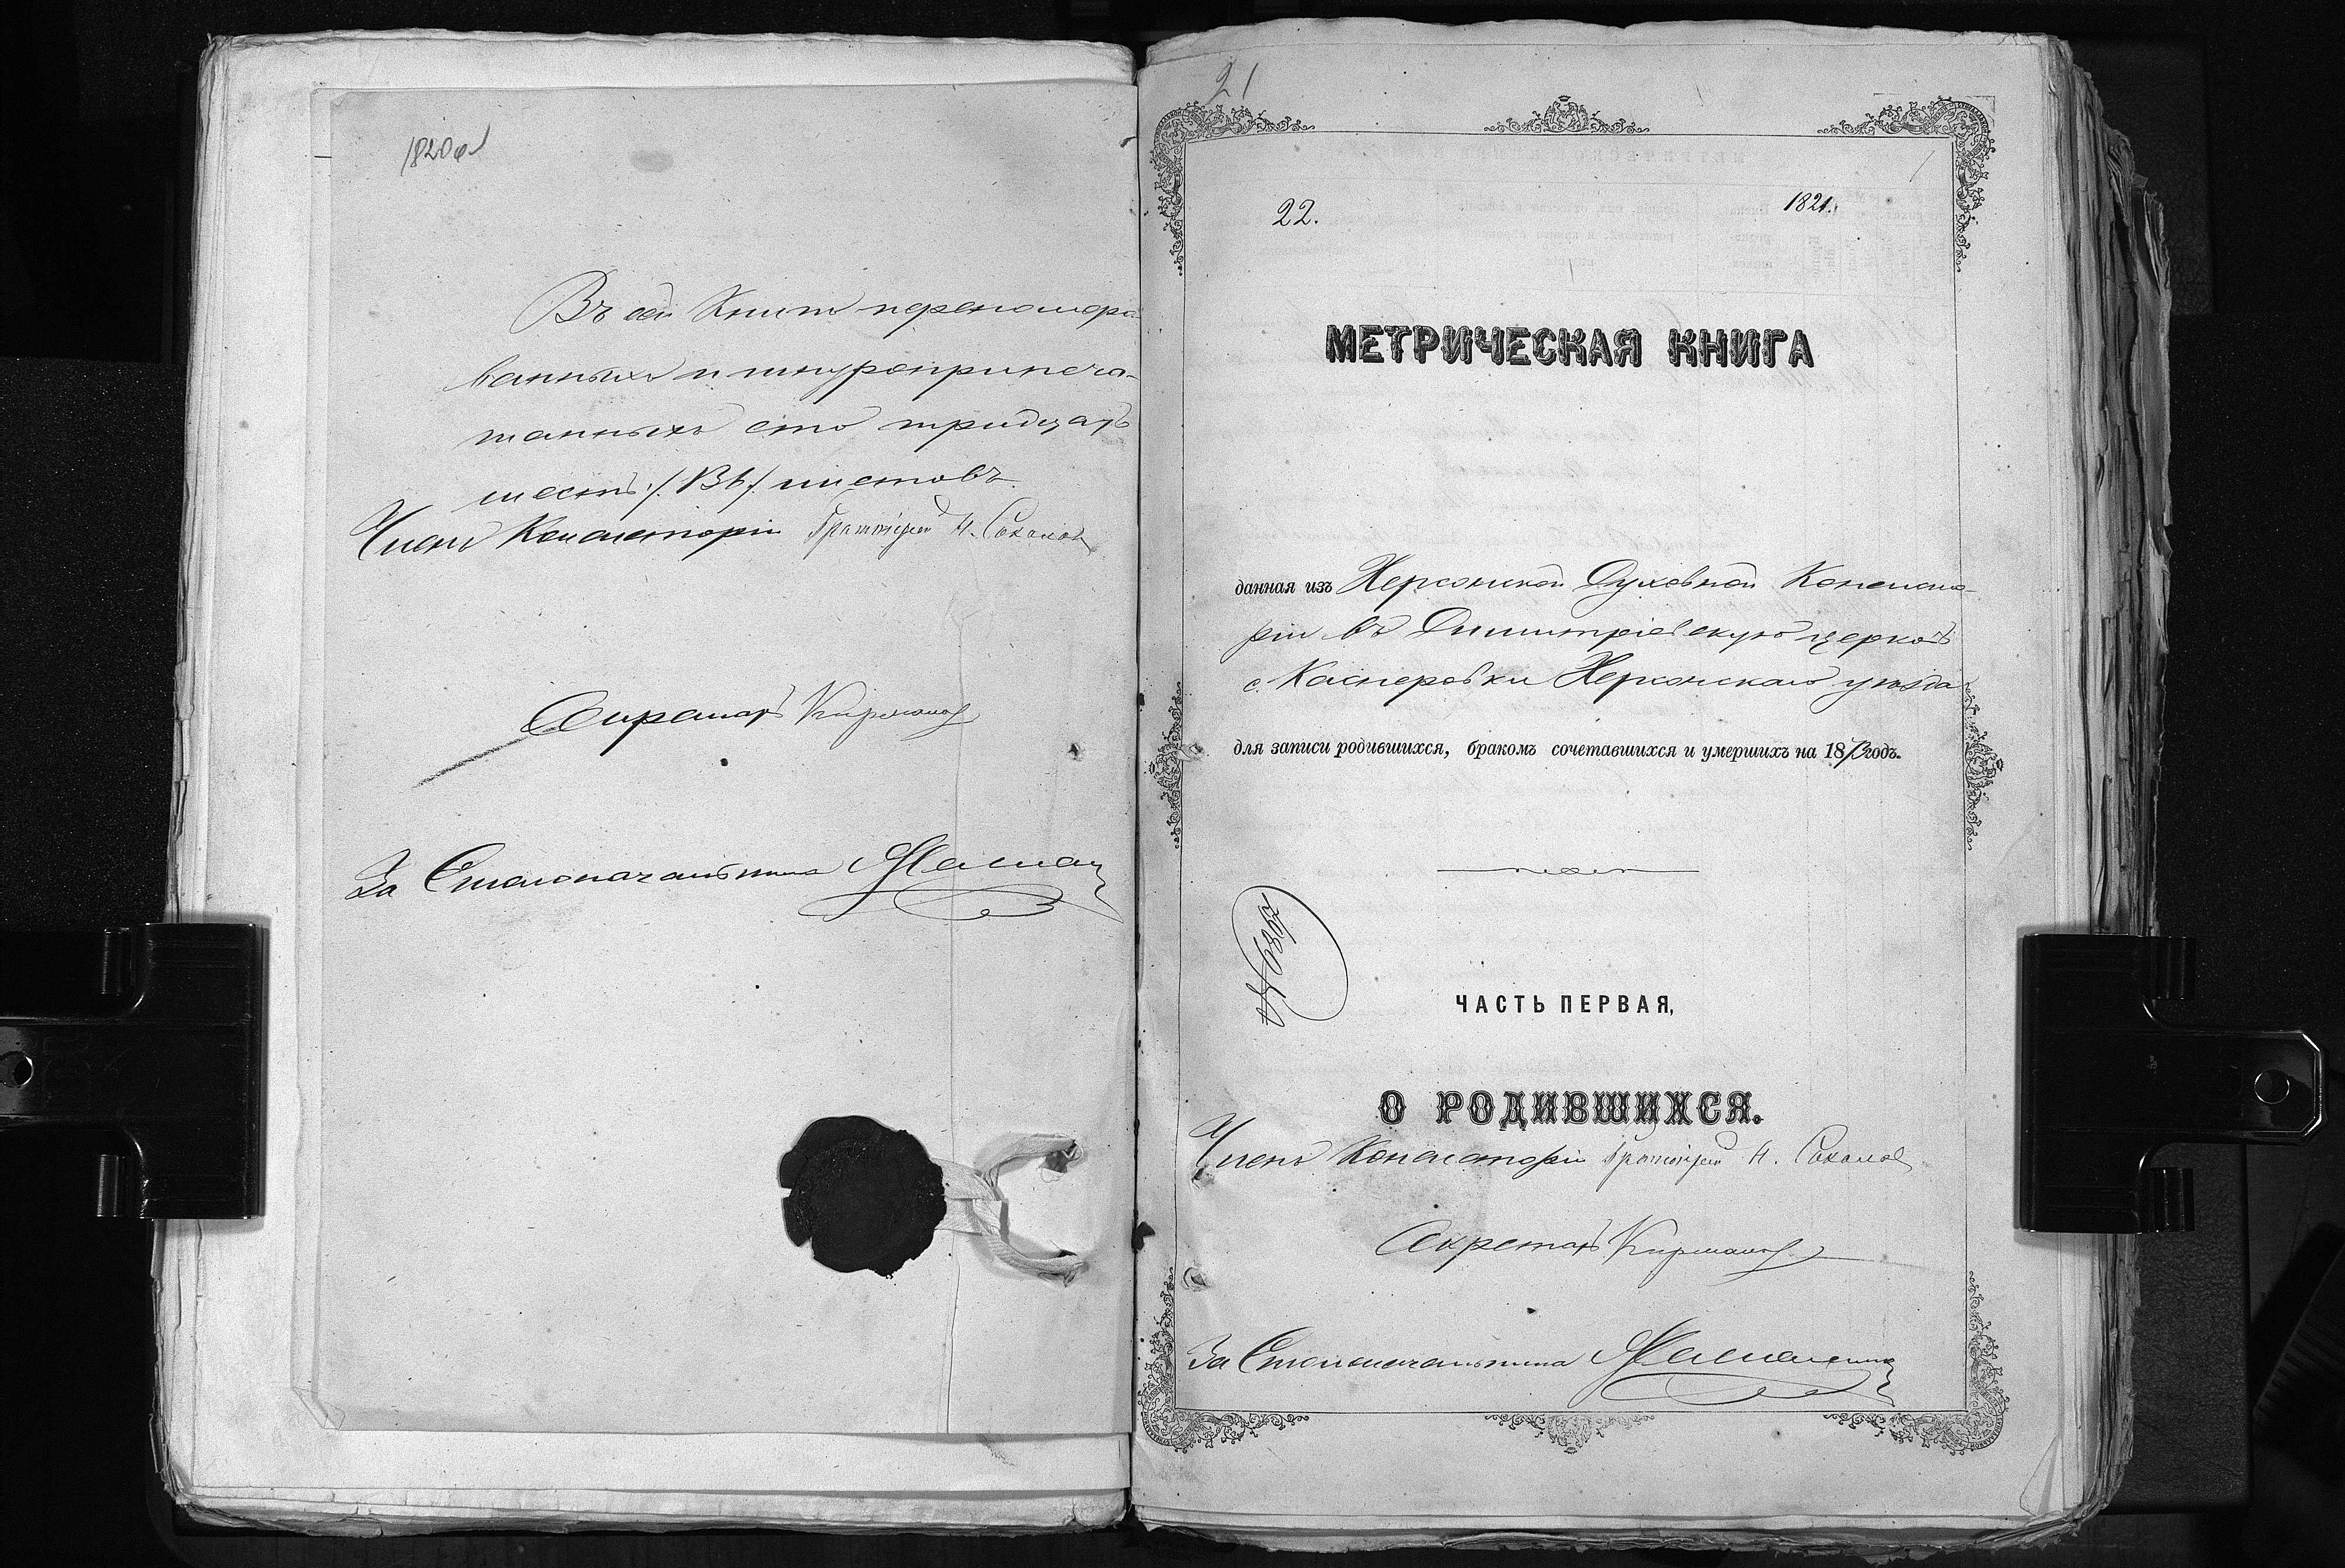 1820 об
Въ сей Книгѣ перенумеро
ванныхъ и шнуроприпеча-
танныхъ сто тридцать
шесть /136/ листовъ.
Членъ Консисторіи Протоіерей Н. Соколов
Секретарь
За Столоначальника
21
22.
1821.
МЕТРИЧЕСКАЯ КНИГА
данная изъ Херсонской Духовной Консисто-
ріи въ Димитріевскую церковь
с. Касперовки Херсонскаго уѣзда
для записи родившихся, бракомъ сочетавшихся и умершихъ на 1873 годъ.
ЧАСТЬ ПЕРВАЯ,
О РОДИВШИХСЯ.
Членъ Консисторіи Протоіерей Н. Соколов
Секретарь
За Столоначальника